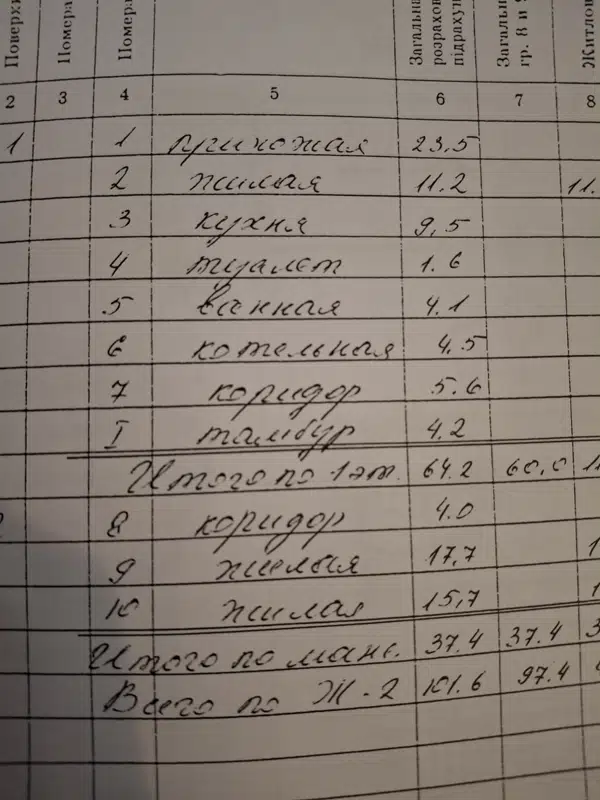 Поверхи Номера Номера Загальна розрахов підрахун Загальн гр. 8 и 9 Житлов
2 3 4 5 6 7 8
1 1 прихожая 23.5
2 жилая 11.2 11.
3 кухня 9,5
4 туалет 1.6
5 ванная 4.1
6 котельная 4.5
7 коридор 5.6
I тамбур 4.2
Итого по 1 эт. 64.2 60,0 11
8 коридор 4.0
9 жилая 17,7 1
10 жилая 15,7 1
Итого по манс. 37.4 37.4 3
Всего по Ж-2 101.6 97.4